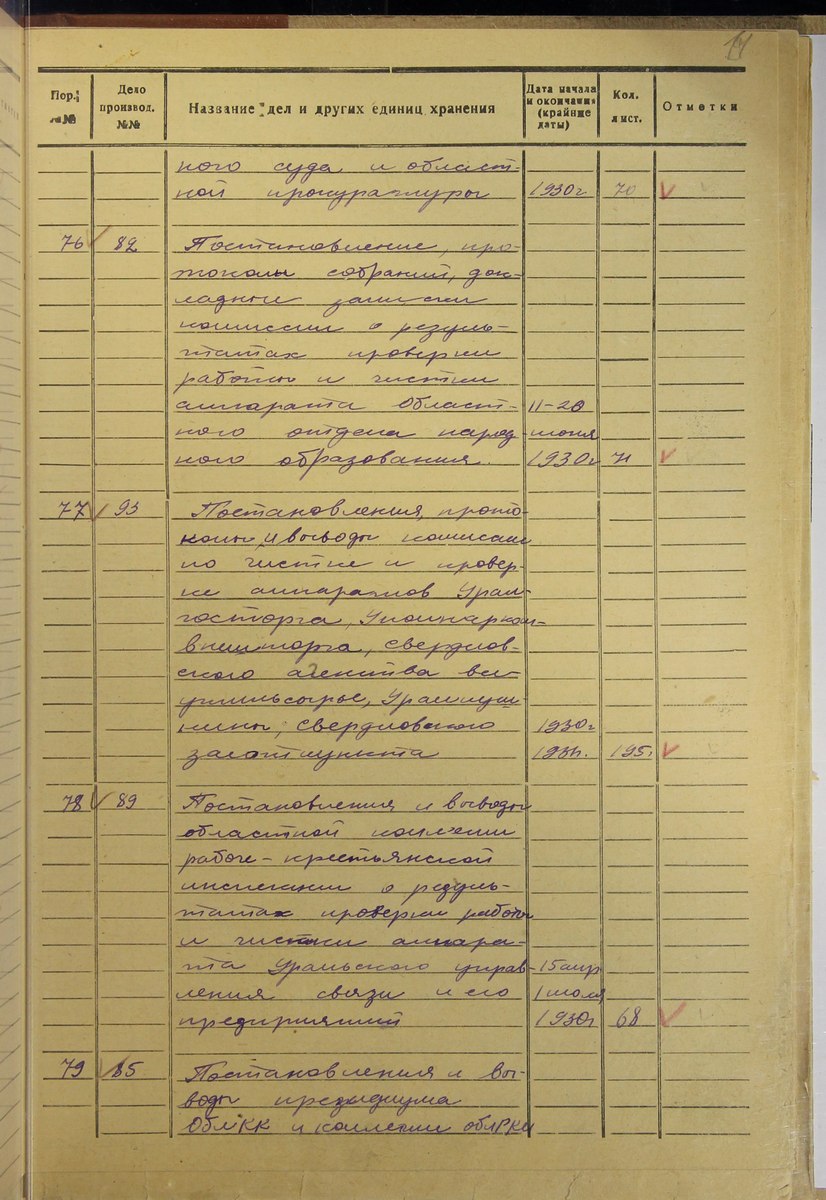 11
Пор.
№№
Дело
производ.
№№
Название дел и других единиц хранения
Дата начала
и окончания
(крайние
даты)
Кол.
лист.
Отметки
ного суда и област-
ной прокуратуры 1930г 70
76 82 Постановление, про-
токолы собраний, док-
ладные записки
комиссии о резуль-
татах проверки
работы и чистки
аппарата Област- 11-20
ного отдела народ- июня
ного образования. 1930г 71
77 93 Постановления, прото-
колы и выводы комиссии
по чистке и провер-
ке аппаратов Урал-
госторга, Уполнарком-
внешторга, Свердлов-
ского агенства
Уралпуш-
нины, Свердловского 1930г
заготпункта 1931г. 195
78 89 Постановления и выводы
областной коллегии
рабоче-крестьянской
инспекции о резуль-
татах проверки работы
и чистки аппара-
та Уральского управ- 15 апр
ления связи и его 1 июля
предприятий 1930г 68
79 85 Постановления и вы-
воды президиума
ОблКК и коллегии облРКИ